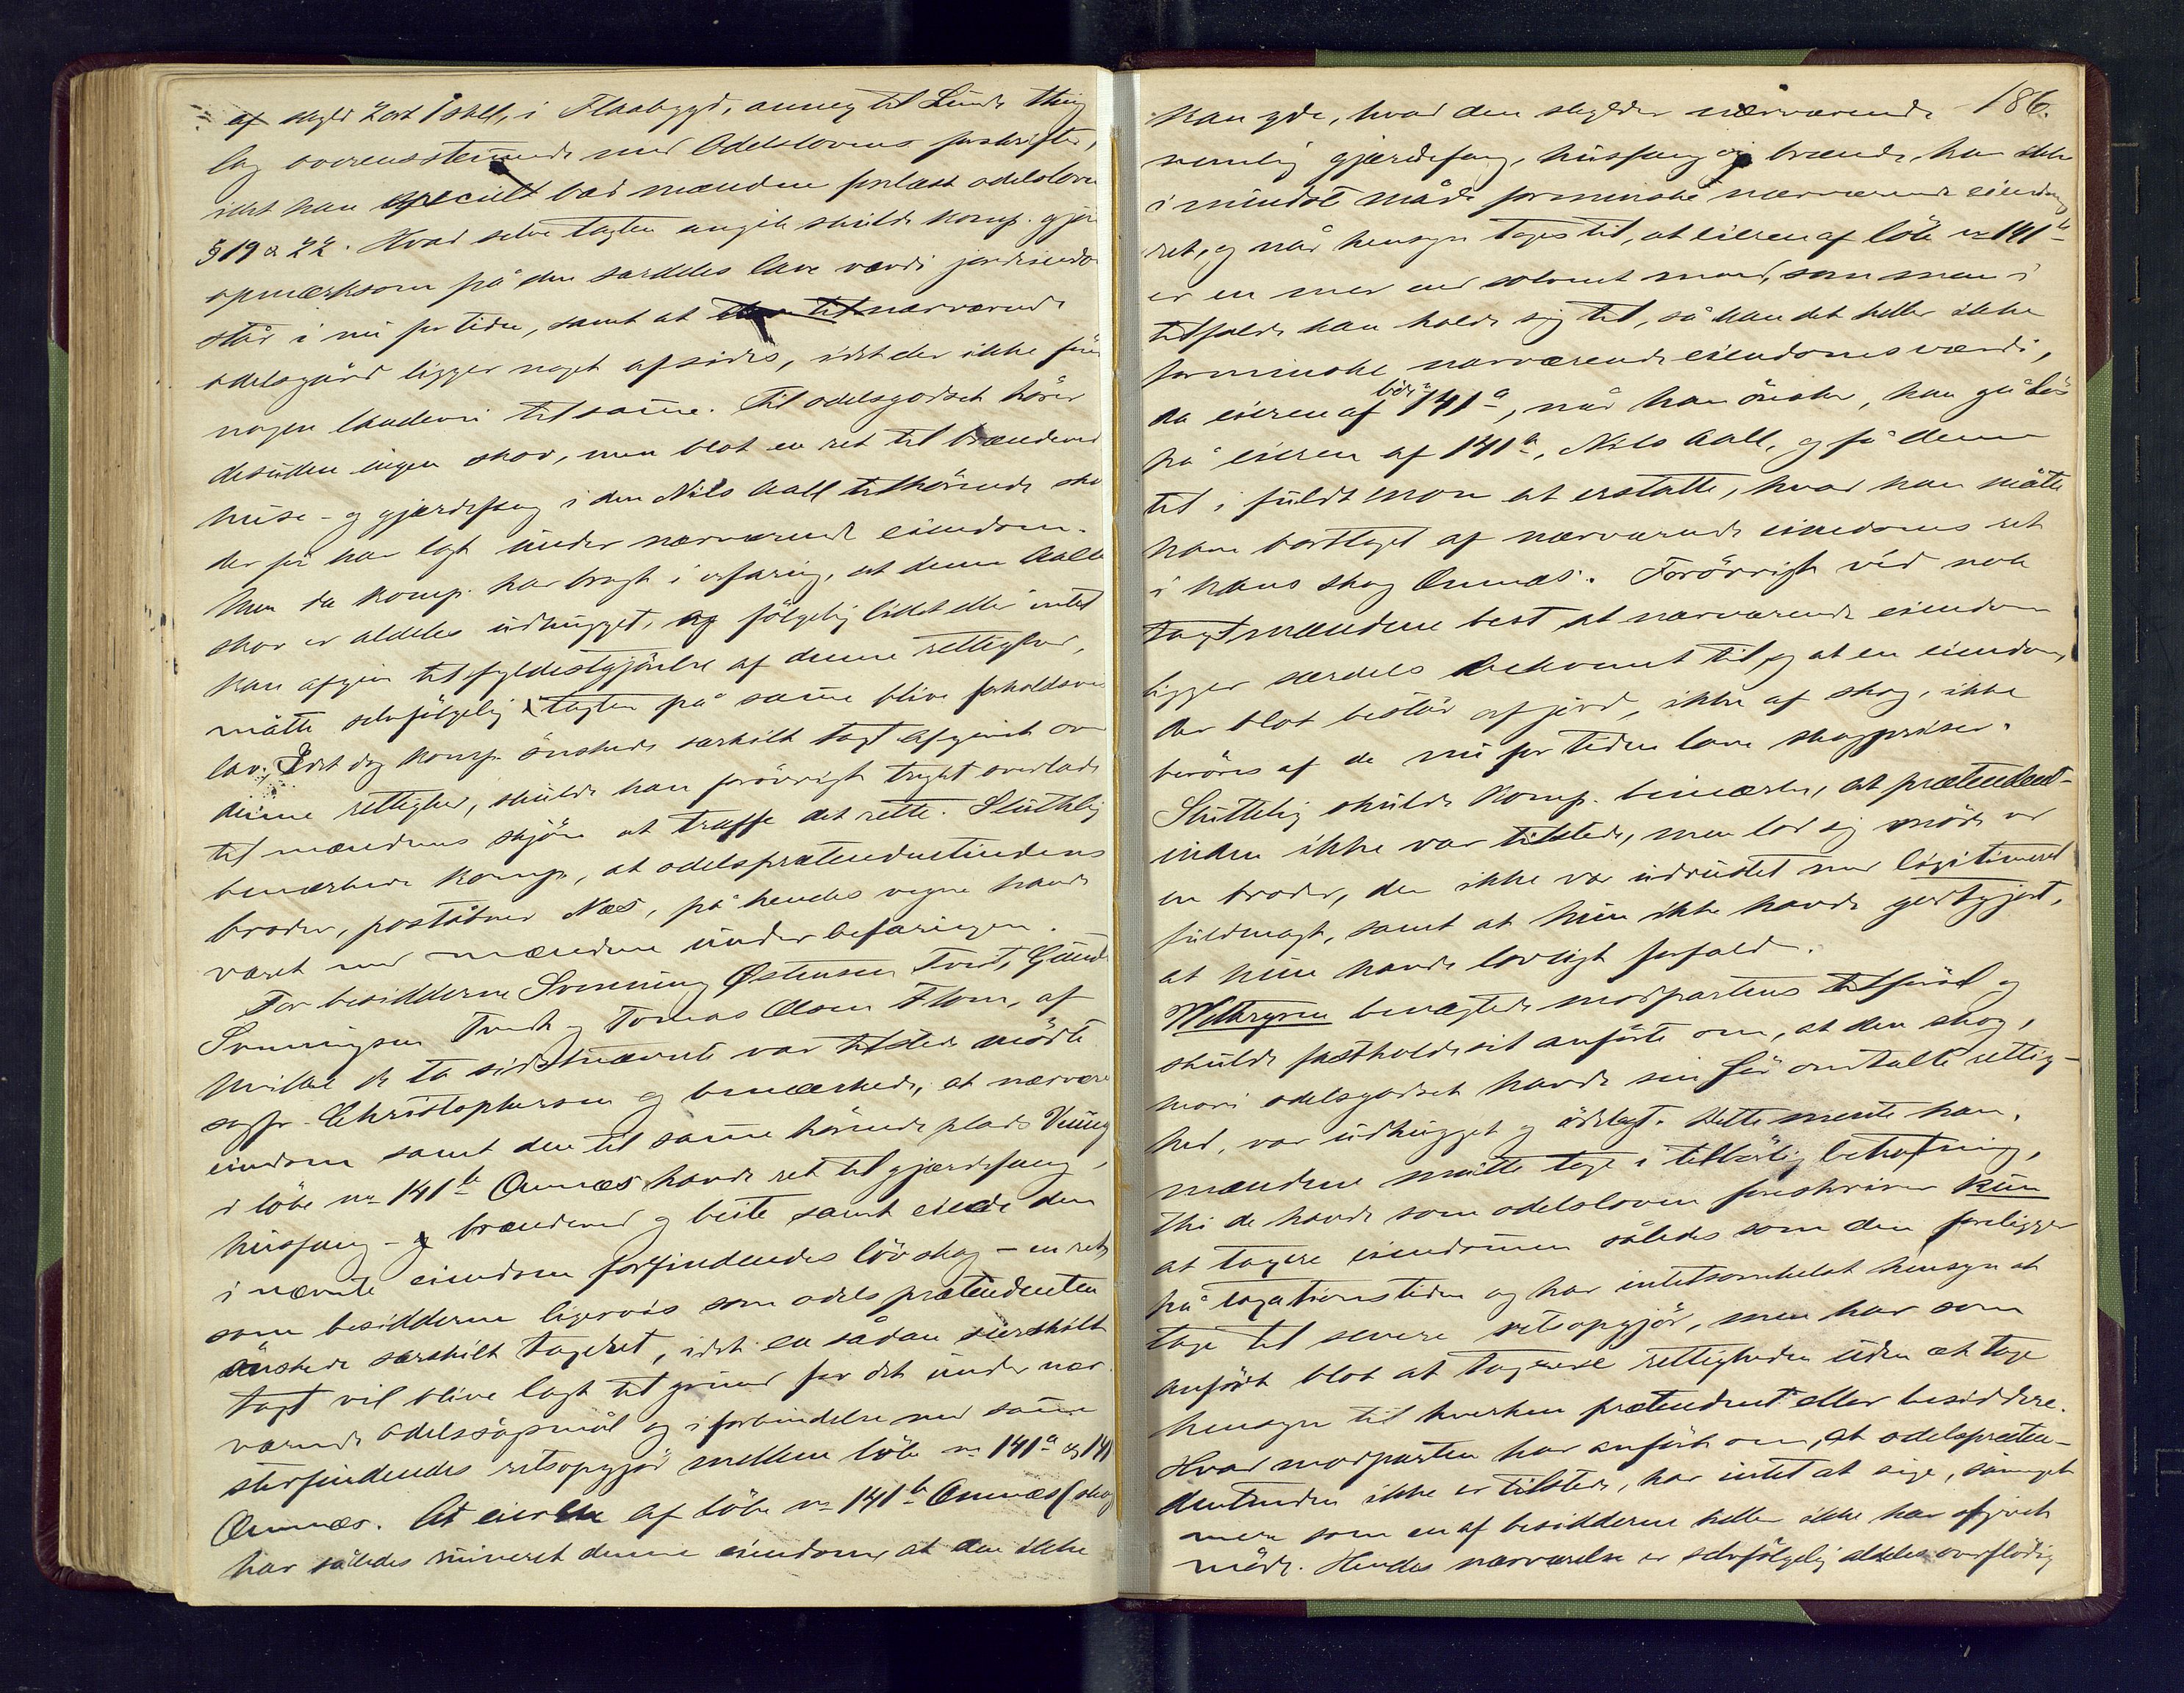 af skyld 2 ort 1 skll, i Flaabygd, annex til Lunde thing
lag overensstemmende med Odelslovens forskrifter,
idet han specielt bad mændene forlæst odelsloven
§ 19 og 22. Hvad selve taxten angik skulde komp. gjøre
opmærksom på den særdeles lave værdi jordeiendom
står i nu for tiden, samt at nærværende
odelsgård ligger noget afsides, idet der ikke
nogen landevei til samme. Til odelsgodset hører
desuden ingen skov, men blot en ret til brændeved
huse- og gjærdefang i den Nils Aall tilhørende sko
der før har lagt under nærværende eiendom.
Men da komp. har bragt i erfaring, at denne Aalls
skov er aldeles udhugget, og følgelig lidet eller intet
kan afgive til fyldestgjørelse af denne rettighed,
måtte selvfølgelig taxten på samme blive forholdsvis
lav. Idet dog komp. ønskede særskilt taxt afgivet over
denne rettighed, skulde han forøvrigt trygt overlade
til mændenes skjøn at træffe det rette. Sluttelig
bemærkede komp, at odelsprætendentindens
broder, poståbner Næs, på hendes vegne havde
været med mændene under befaringen.
For besidderne Svenning Østensen Tveit, Gunder
Svenningsen Tveit og Tomas Olsen Flom, af
hvilke de to sidstnævnte var tilstede mødte
sagfr. Christophersen og bemærkede, at nærværende
eiendom samt den til samme hørende plads
i løbe no 141b Omnæs havde ret til gjærdefang,
husfang- og brændeved og beite samt eiede den
i nævnte eiendom forfindendes løvskog – en ret,
som besidderne ligesåvis som odelsprætendenten
ønskede særskilt taxeret, idet en sådan særskilt
taxt vil blive lagt til grund for det under nær-
værende odelssøgsmål og i forbindelse med samme
stedfindendes retsopgjør mellem løbe no 141a og 141
Omnæs. At eieren af løbe no 141b Omnæs (skog
har således ruineret denne eiendom, at den ikke
186.
kan yde, hvad den skylder nærværende
nemlig gjærdefang, husfang og brænde, kan ikke
i mindst måde forminske nærværende eiendoms
ret, og når hensyn tages til, at eieren af løbe no 141b
er en mer end solvent mand, som man i
tilfælde kan holde sig til, så kan det heller ikke
forminske nærværende eiendoms værdi,
da eieren af løbe no 141a, når han ønsker, kan gå løs
på eieren af 141b, Nils Aall, og få denne
til i fuldt mon at erstatte, hvad han måtte
have borttaget af nærværende eiendoms ret
i hans skog Omnæs. Forøvrigt véd nok
taxtmændene best, at nærværende eiendom
ligger særdeles bekvemt til, og at en eiendom,
der blot består af jord, ikke af skog, ikke
berøres af de nu for tiden lave skogpriser.
Sluttelig skulde komp. bemærke, at prætendent-
inden ikke var tilstede, men lod sig møde ved
en broder, der ikke var udrustet med legitimeret
fuldmagt, samt at hun ikke havde godtgjort,
at hun havde lovligt forfald.
Wethergren benægtede modpartens tilførsel og
skulde fastholde sit anførte om, at den skog,
hvori odelsgodset havde sin før omtalte rettig-
hed, var udhugget og ødelagt. Dette mente han,
mændene måtte tage i tilbørlig betragtning,
thi de havde som odelsloven foreskriver kun
at taxere eiendommen således som den foreligger
på taxationstiden og har intetsomhelst hensyn at
tage til senere retsopgjør, men har som
anført blot at taxere rettigheden uden at tage
hensyn til hverken prætendent eller besiddere.
Hvad modparten har anført om, at odelspræten-
dentinden ikke er tilstede, har intet at sige, såmeget
mere som en af besidderne heller ikke har afgivet
møde. Hendes nærværelse er selvfølgelig aldeles overflødig